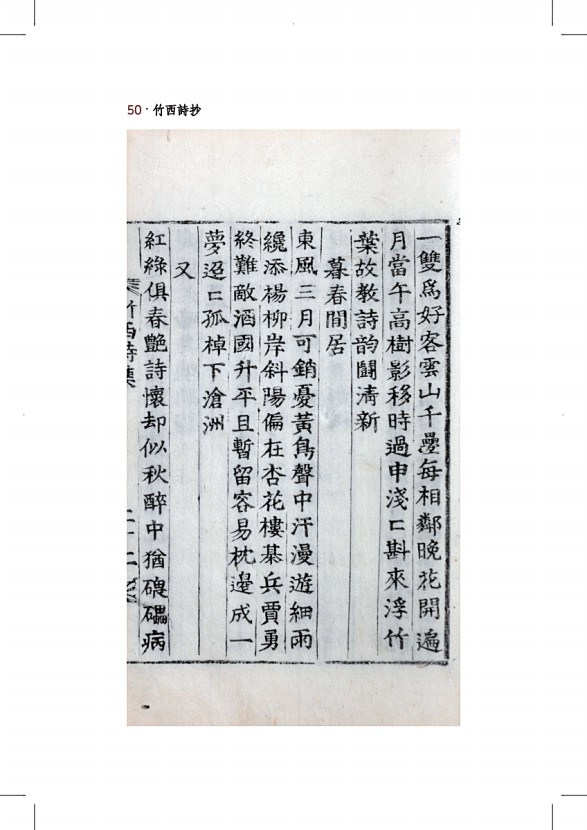 50 · 竹西詩抄
一雙爲好客雲山千疊每相鄰晚花開遍
月當午高樹影移時過申淺匸斟來浮竹
葉故敎詩韵鬪清新
暮春閒居
東風三月可銷憂黃鳥聲中汗漫遊細雨
纔添楊柳岸斜陽偏在杏花樓棊兵賈勇
終難敵酒國升平且暫留容易枕邊成一
夢迢匸孤棹下滄洲
又
紅綠俱春艶詩懷却似秋醉中猶磈礧病
竹西詩集